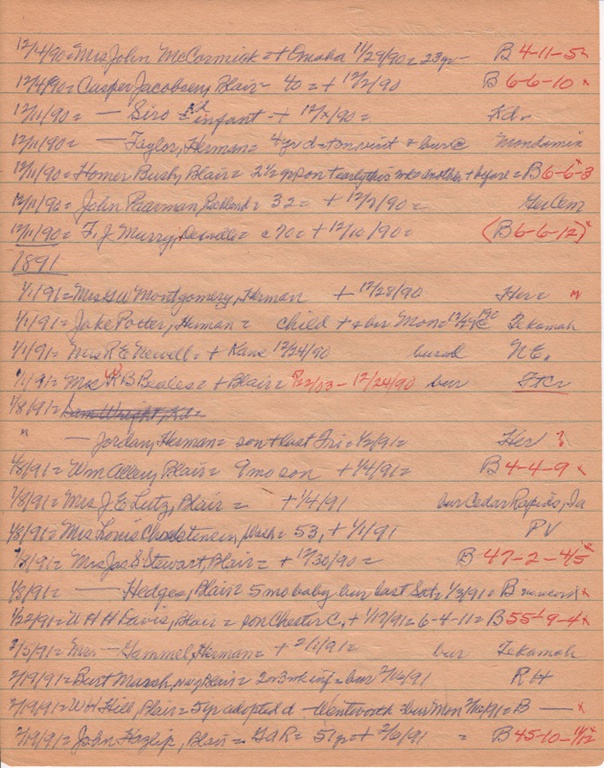 12/4/90= Mrs John McCormick = + Omaha 11/29/90 = 23yr - B 4-11-5
12/4/90= Casper Jacobsen, Blair - 40 = + 12/2/90 B 6-6-10 x
12/11/90= - Siro = infant - + 12/ /90= Kd.
12/11/90= - Taylor, Herman = 4yr d = + on visit + bur @ Mondamin
12/11/90= Homer Bush, Blair = 2½ yr son + early this wk = another + before = B 6-6-3
12/11/90= John = 32 = + 12/ /90=
12/11/90= F. J. Murry, = c70 = + 12/10/90= (B 6-6-12) x
1891
1/1/91= Mrs G W Montgomery, Herman + 12/28/90 Her=
1/1/91= Jake Porter, Herman = child + + bur Mon= Tekamah
1/1/91= Mrs R E Newill = + Kans 12/24/90 burial NE,
1/1/91= Mrs R B Beales = + Blair = 12/24/90 bur Ft C
1/8/91= Sam Wright, Kd=
" - Jordan, Herman = son + last Fri = 1/2/91= Her ?
1/8/91= Wm Allen, Blair = 9 mo son + 1/4/91= B 4-4-9 x
1/8/91= Mrs J E Lutz, Blair = + 1/4/91 bur Cedar Rapids, Ia
1/8/91= Mrs Louis Christensen, Wash = 53, + 1/1/91 PV
1/8/91= Mrs Jas S Stewart, Blair = + 12/30/90= B 47-2-4/5 x
1/8/91= - Hedges, Blair = 5 mo baby bur last Sat= 1/3/91= B no record x
1/22/91= W H H Davis, Blair = son Chester C. + 1/17/91= 6-4-11= B 55-9-4 x
2/5/91= Mrs - Gammel, Herman = + 2/1/91= bur Tekamah
2/19/91= Burt Marsh, Blair = 2 or 3 wk inf = bur 2/16/91 RH
2/19/91= W H Hill, Blair = 5yr adopted d - Wentworth = bur Mon 2/16/91= B - x
2/19/91= John Hazlip, Blair = GAR = 51yr + 2/ /91 = B 45-10-11/12